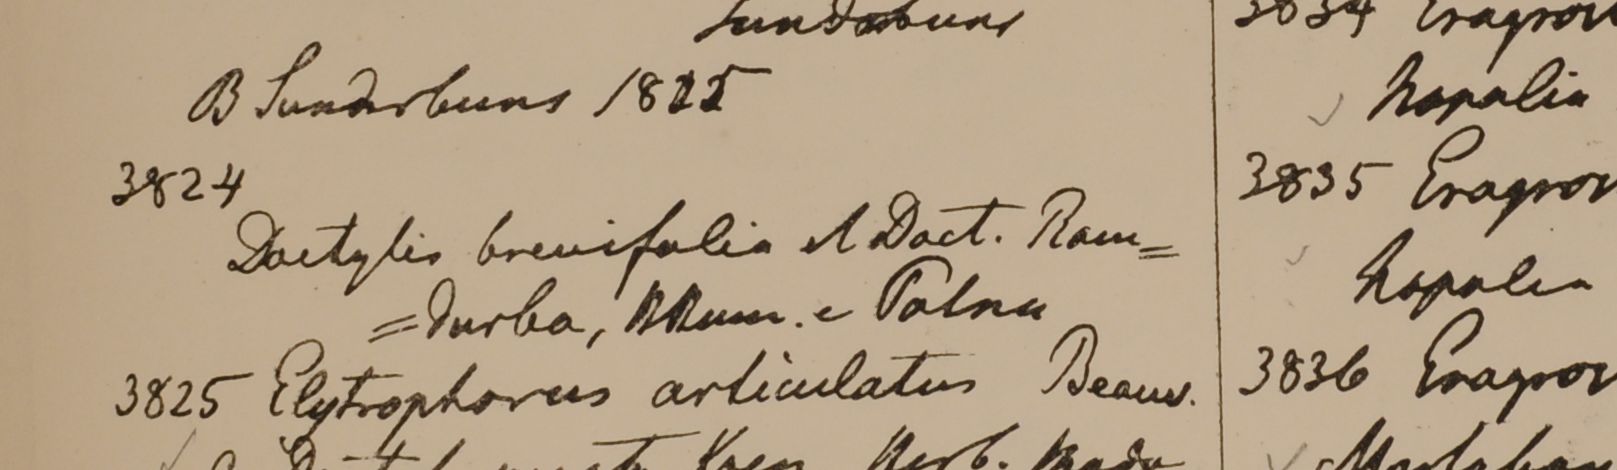 Sundarbuns
B Sunderbuns 1825
3824
Dactylis brevifolia et Dact. Ram=
=durba, Ham. e Patna
3825 Elytrophorus articulatus Beauv.
Herb. Madr
3834 Eragros
Napalia
3835 Eragros
Napalia
3836 Eragros
Martaban